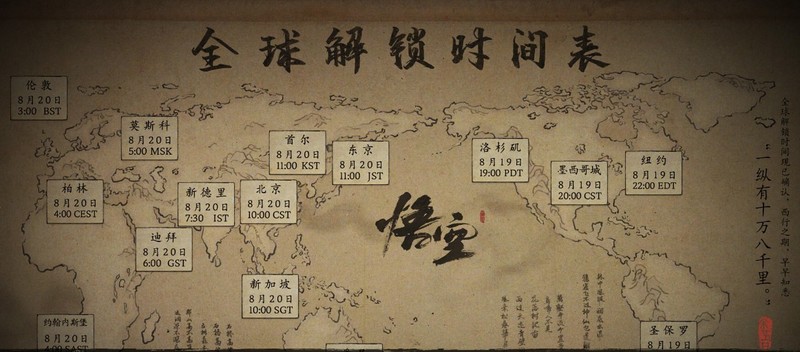 全球解锁时间表
伦敦
8月20日
3:00 BST
莫斯科
8月20日
5:00 MSK
首尔
8月20日
11:00 KST
东京
8月20日
11:00 JST
洛杉矶
8月19日
19:00 PDT
墨西哥城
8月19日
20:00 CST
纽约
8月19日
22:00 EDT
柏林
8月20日
4:00 CEST
新德里
8月20日
7:30 IST
北京
8月20日
10:00 CST
迪拜
8月20日
6:00 GST
悟空
新加坡
8月20日
10:00 SGT
约翰内斯堡
8月20日
4:00 SAST
圣保罗
8月19日
全球解锁时间现已确认，西行之期，早早知悉
：一纵有十万八千里。：